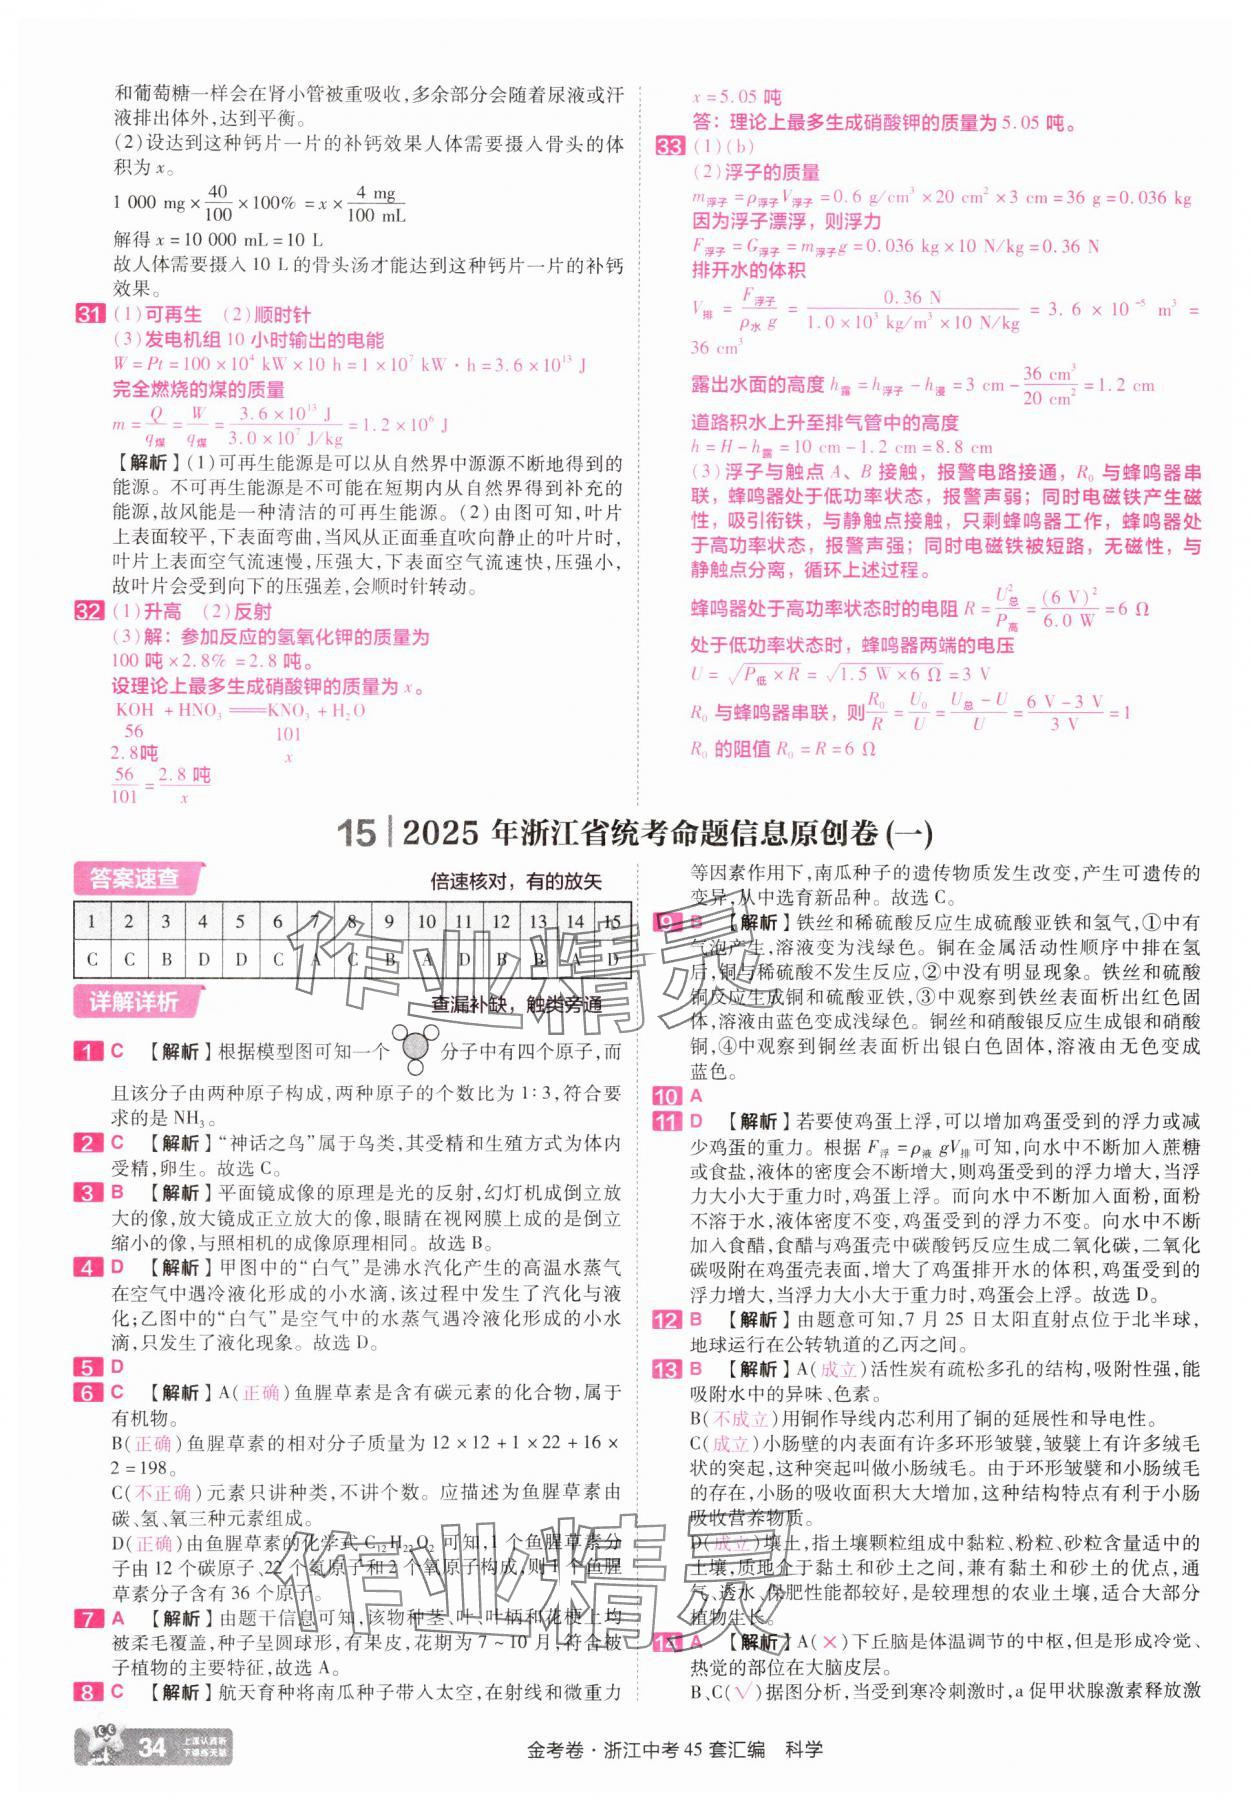 和葡萄糖一样会在肾小管被重吸收,多余部分会随着尿液或汗
液排出体外,达到平衡。
(2)设达到这种钙片一片的补钙效果人体需要摄入骨头的体
积为 x。
1 000 mg×40/100×100%=x×4 mg/100 mL
解得 x=10 000 mL=10 L
故人体需要摄入 10 L 的骨头汤才能达到这种钙片一片的补钙
效果。
31 (1)可再生 (2)顺时针
(3)发电机组 10 小时输出的电能
W=Pt=100×10⁴ kW×10 h=1×10⁷ kW·h=3.6×10¹³ J
完全燃烧的煤的质量
m=Q/q煤=W/q煤=3.6×10¹³ J/3.0×10⁷ J/kg=1.2×10⁶ J
【解析】(1)可再生能源是可以从自然界中源源不断地得到的
能源。不可再生能源是不可能在短期内从自然界得到补充的
能源,故风能是一种清洁的可再生能源。(2)由图可知,叶片
上表面较平,下表面弯曲,当风从正面垂直吹向静止的叶片时,
叶片上表面空气流速慢,压强大,下表面空气流速快,压强小,
故叶片会受到向下的压强差,会顺时针转动。
32 (1)升高 (2)反射
(3)解:参加反应的氢氧化钾的质量为
100 吨×2.8%=2.8 吨。
设理论上最多生成硝酸钾的质量为 x。
KOH+HNO₃══KNO₃+H₂O
56 101
2.8吨 x
56/101=2.8 吨/x
x=5.05 吨
答:理论上最多生成硝酸钾的质量为 5.05 吨。
33 (1)(b)
(2)浮子的质量
m浮子=ρ浮子V浮子=0.6 g/cm³×20 cm²×3 cm=36 g=0.036 kg
因为浮子漂浮,则浮力
F浮子=G浮子=m浮子g=0.036 kg×10 N/kg=0.36 N
排开水的体积
V排=F浮子/ρ水g=0.36 N/1.0×10³ kg/m³×10 N/kg=3.6×10⁻⁵ m³=
36 cm³
露出水面的高度 h露=h浮子-h浸=3 cm-36 cm³/20 cm²=1.2 cm
道路积水上升至排气管中的高度
h=H-h露=10 cm-1.2 cm=8.8 cm
(3)浮子与触点 A、B 接触,报警电路接通,R₀ 与蜂鸣器串
联,蜂鸣器处于低功率状态,报警声弱;同时电磁铁产生磁
性,吸引衔铁,与静触点接触,只剩蜂鸣器工作,蜂鸣器处
于高功率状态,报警声强;同时电磁铁被短路,无磁性,与
静触点分离,循环上述过程。
蜂鸣器处于高功率状态时的电阻 R=U²总/P高=(6 V)²/6.0 W=6 Ω
处于低功率状态时,蜂鸣器两端的电压
U=√P低×R=√1.5 W×6 Ω=3 V
R₀ 与蜂鸣器串联,则R₀/R=U₀/U=U总-U/U=6 V-3 V/3 V=1
R₀ 的阻值 R₀=R=6 Ω
15 2025 年浙江省统考命题信息原创卷(一)
答案速查 倍速核对,有的放矢
1 2 3 4 5 6 7 8 9 10 11 12 13 14 15
C C B D D C A C B A D B B A D
详解详析 查漏补缺,触类旁通
1 C 【解析】根据模型图可知一个 分子中有四个原子,而
且该分子由两种原子构成,两种原子的个数比为 1∶3,符合要
求的是 NH₃。
2 C 【解析】“神话之鸟”属于鸟类,其受精和生殖方式为体内
受精,卵生。故选 C。
3 B 【解析】平面镜成像的原理是光的反射,幻灯机成倒立放
大的像,放大镜成正立放大的像,眼睛在视网膜上成的是倒立
缩小的像,与照相机的成像原理相同。故选 B。
4 D 【解析】甲图中的“白气”是沸水汽化产生的高温水蒸气
在空气中遇冷液化形成的小水滴,该过程中发生了汽化与液
化;乙图中的“白气”是空气中的水蒸气遇冷液化形成的小水
滴,只发生了液化现象。故选 D。
5 D
6 C 【解析】A(正确)鱼腥草素是含有碳元素的化合物,属于
有机物。
B(正确)鱼腥草素的相对分子质量为 12×12+1×22+16×
2=198。
C(不正确)元素只讲种类,不讲个数。应描述为鱼腥草素由
碳、氢、氧三种元素组成。
D(正确)由鱼腥草素的化学式 C₁₂H₂₂O₂ 可知,1 个鱼腥草素分
子由 12 个碳原子、22 个氢原子和 2 个氧原子构成,则 1 个鱼腥
草素分子含有 36 个原子。
7 A 【解析】由题干信息可知,该物种茎、叶、叶柄和花梗上均
被柔毛覆盖,种子呈圆球形,有果皮,花期为 7~10 月,符合被
子植物的主要特征,故选 A。
8 C 【解析】航天育种将南瓜种子带入太空,在射线和微重力
等因素作用下,南瓜种子的遗传物质发生改变,产生可遗传的
变异,从中选育新品种。故选 C。
9 B 【解析】铁丝和稀硫酸反应生成硫酸亚铁和氢气,①中有
气泡产生,溶液变为浅绿色。铜在金属活动性顺序中排在氢
后,铜与稀硫酸不发生反应,②中没有明显现象。铁丝和硫酸
铜反应生成铜和硫酸亚铁,③中观察到铁丝表面析出红色固
体,溶液由蓝色变成浅绿色。铜丝和硝酸银反应生成银和硝酸
铜,④中观察到铜丝表面析出银白色固体,溶液由无色变成
蓝色。
10 A
11 D 【解析】若要使鸡蛋上浮,可以增加鸡蛋受到的浮力或减
少鸡蛋的重力。根据 F浮=ρ液gV排可知,向水中不断加入蔗糖
或食盐,液体的密度会不断增大,则鸡蛋受到的浮力增大,当浮
力大小大于重力时,鸡蛋上浮。而向水中不断加入面粉,面粉
不溶于水,液体密度不变,鸡蛋受到的浮力不变。向水中不断
加入食醋,食醋与鸡蛋壳中碳酸钙反应生成二氧化碳,二氧化
碳吸附在鸡蛋壳表面,增大了鸡蛋排开水的体积,鸡蛋受到的
浮力增大,当浮力大小大于重力时,鸡蛋会上浮。故选 D。
12 B 【解析】由题意可知,7 月 25 日太阳直射点位于北半球,
地球运行在公转轨道的乙丙之间。
13 B 【解析】A(成立)活性炭有疏松多孔的结构,吸附性强,能
吸附水中的异味、色素。
B(不成立)用铜作导线内芯利用了铜的延展性和导电性。
C(成立)小肠壁的内表面有许多环形皱襞,皱襞上有许多绒毛
状的突起,这种突起叫做小肠绒毛。由于环形皱襞和小肠绒毛
的存在,小肠的吸收面积大大增加,这种结构特点有利于小肠
吸收营养物质。
D(成立)壤土,指土壤颗粒组成中黏粒、粉粒、砂粒含量适中的
土壤,质地介于黏土和砂土之间,兼有黏土和砂土的优点,通
气、透水、保肥性能都较好,是较理想的农业土壤,适合大部分
植物生长。
14 A 【解析】A(×)下丘脑是体温调节的中枢,但是形成冷觉、
热觉的部位在大脑皮层。
B、C(√)据图分析,当受到寒冷刺激时,a 促甲状腺激素释放激
作业精灵
作业精灵
34 上课认真听
下课练天第
金考卷·浙江中考 45 套汇编 科学